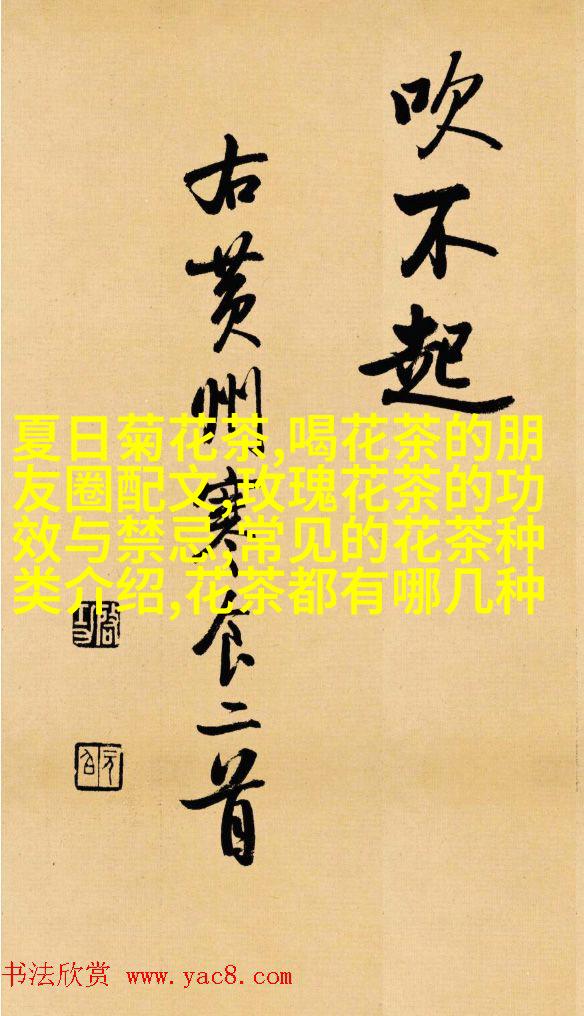 吹不起
右黄州寒食二首
夏日菊花茶,喝花茶的朋
友圈配文,玫瑰花茶的功
效与禁忌,常见的花茶种
类介绍,花茶都有哪几种
书法欣赏 www.yac8.com